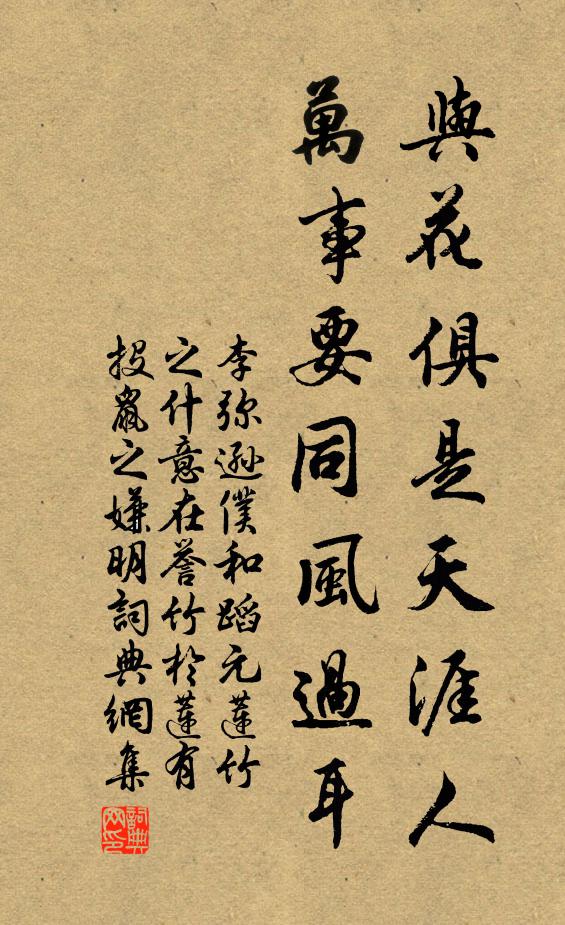 與花俱是天涯人
萬事要同風過耳
李弥遜僕和蹈元蓮竹
之什意在誉竹於蓮有
投鼠之嫌明詞典網集
詞典
网印